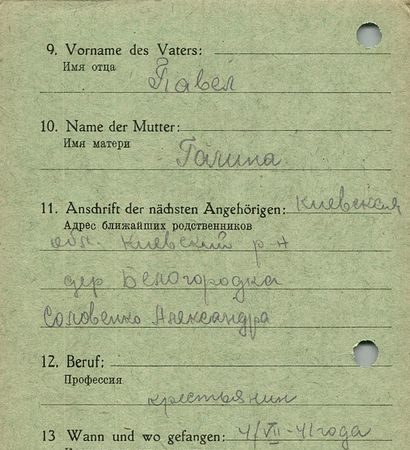 9. Vorname des Vaters:
Имя отца
Павел
10. Name der Mutter:
Имя матери
Галина
11. Anschrift der nächsten Angehörigen: Киевская
Адрес ближайших родственников
обл. Киевский р-н
дер Белогородка
Соловенко Александра
12. Beruf:
Профессия
крестьянин
13 Wann und wo gefangen: 4/VII-41 года